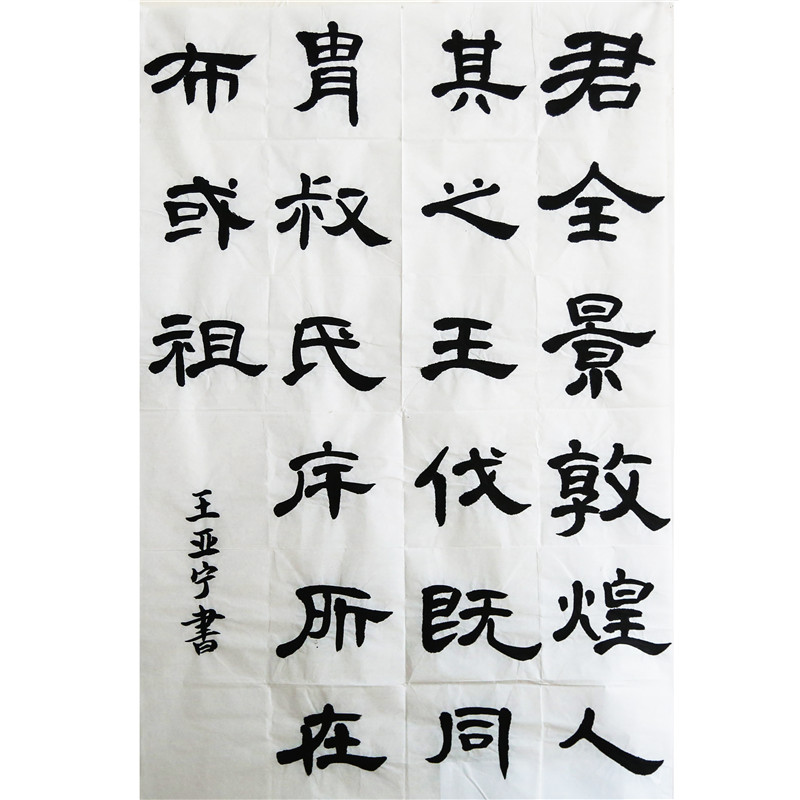 君全景敦煌人
其之王伐既同
胄叔氏序所在
布或祖
王亚宁書